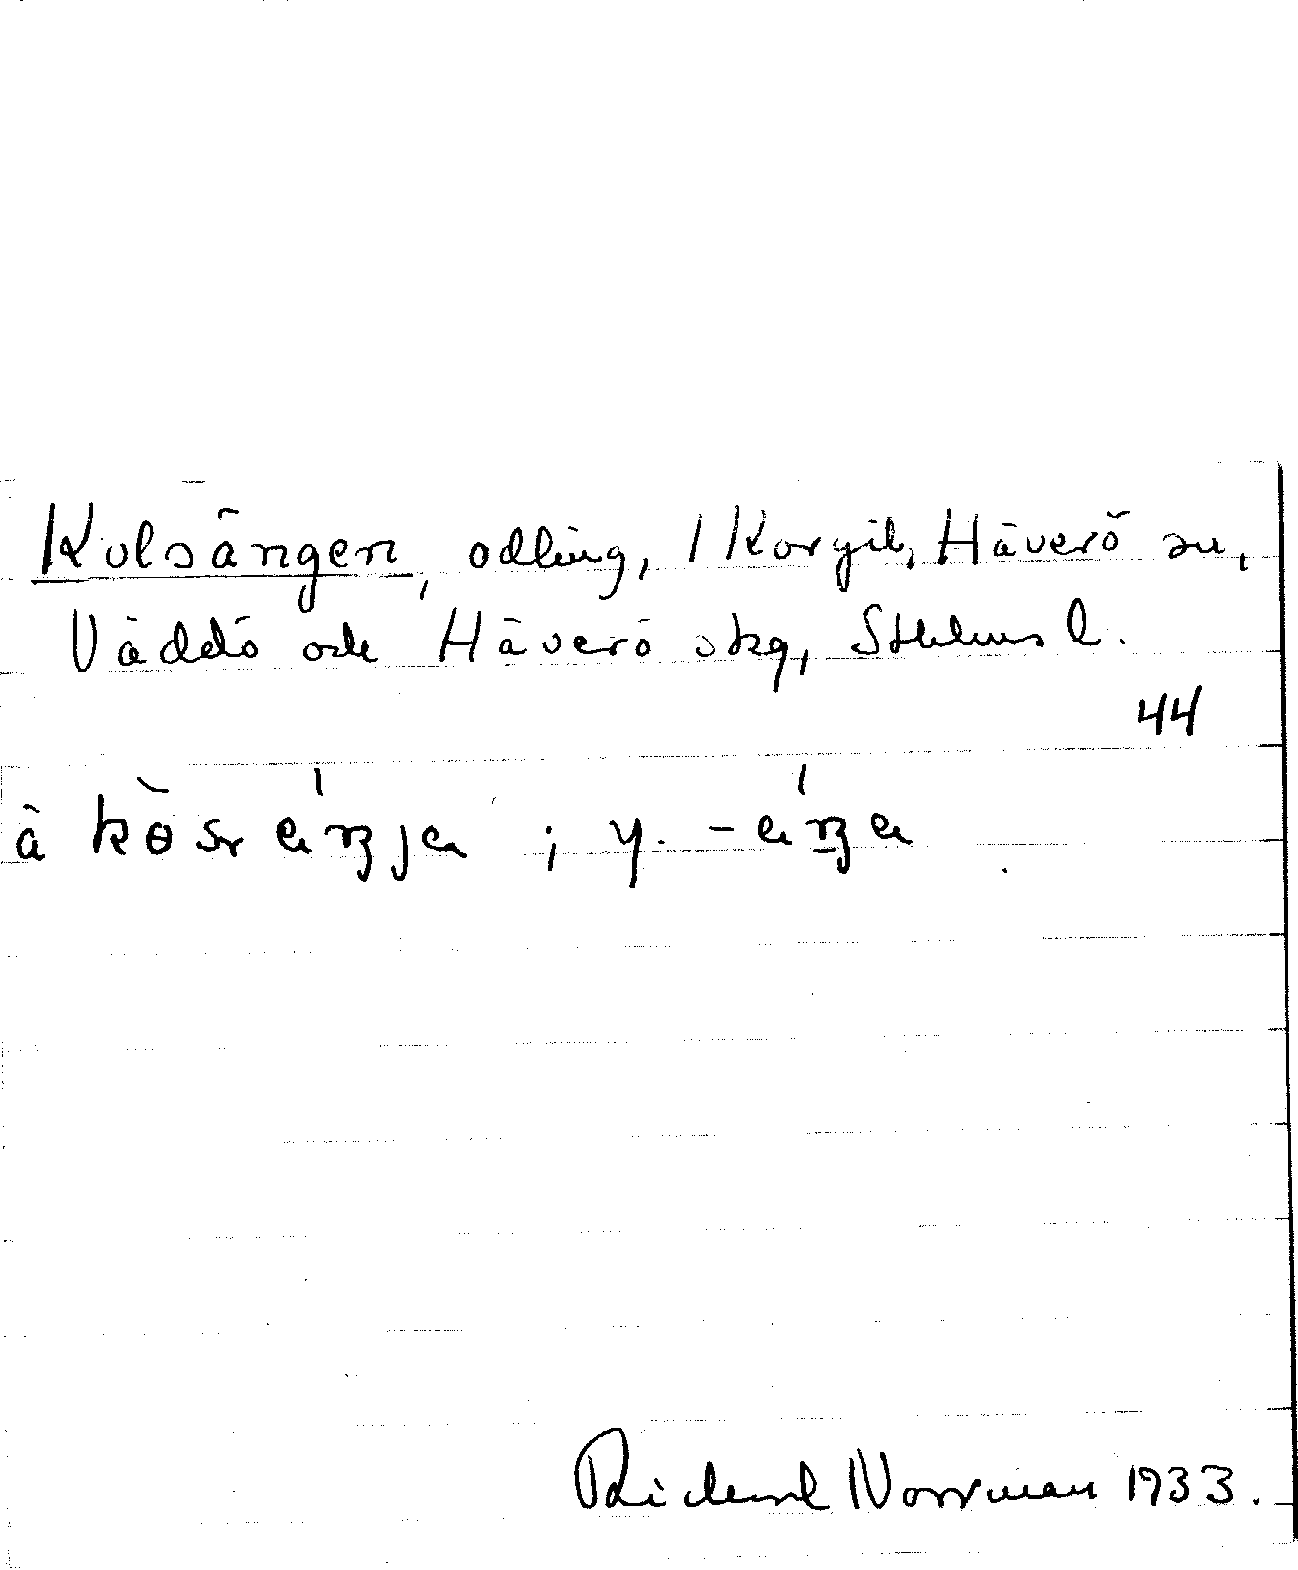 Kolsängen, odling, 1 Korgil, Häverö sn,
Väddö och Häverö skg, Sthlms l.
44
å
; y.
Richard Norrman 1933.